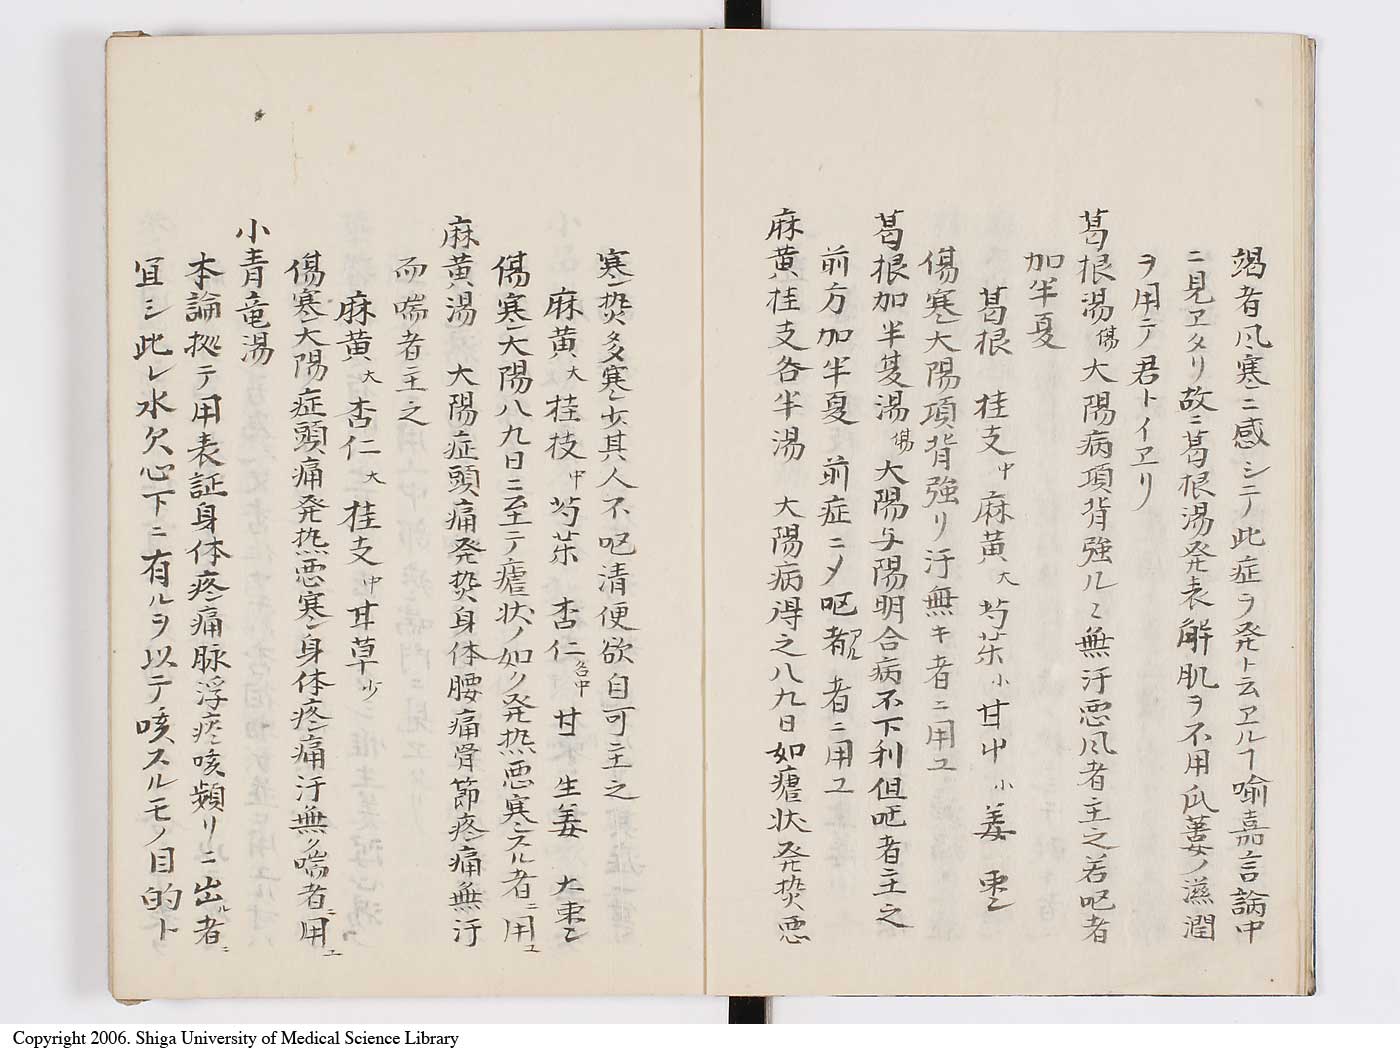 竭者风寒ニ感シテ此症ヲ発ト云ヱルヿ喻嘉言論中
ニ見ヱタリ故ニ葛根湯発表解肌ヲ不用瓜蔞ノ滋潤
ヲ用テ君トイヱリ
葛根湯 大陽病項背強ルヽ無汗悪风者主之若呕者
加半夏
葛根 桂支中麻黄大芍薬小甘中小姜 棗
傷寒大陽項背強リ汗無キ者ニ用ユ
葛根加半夏湯 大陽与陽明合病不下利但呕者主之
前方加半夏 前症ニメ呕 者ニ用ユ
麻黄桂支各半湯 大陽病得之八九日如瘧状発𤍠悪
寒𤍠多寒少其人不呕清便欲自可主之
麻黄大桂枝中芍薬 杏仁各中甘 生姜 大棗
傷寒大陽八九日ニ至テ瘧状ノ如ク発热悪寒スル者ニ用ユ
麻黄湯 大陽症頭痛発𤍠身体腰痛骨節疼痛無汗
而喘者主之
麻黄大杏仁大桂支中甘草少
傷寒大陽症頭痛発热悪寒身体疼痛汗無ク喘者ニ用ユ
小青竜湯
本論拠テ用表証身体疼痛脉浮痰咳頻リニ出ル者ニ
宜シ此レ水欠心下ニ有ルヲ以テ咳スルモノ目的ト
Copyright 2006. Shiga University of Medical Science Library